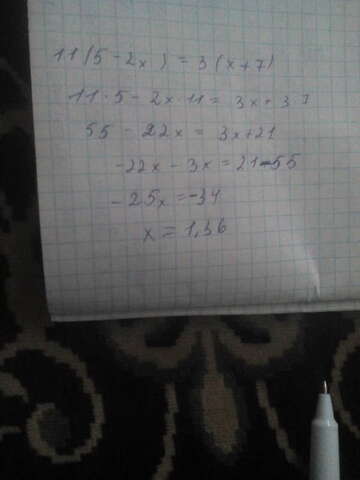 11(5-2x) = 3(x+7)
11·5-2x·11= 3x+3·7
55-22x = 3x+21
-22x-3x=21-55
-25x=-34
x=1,36